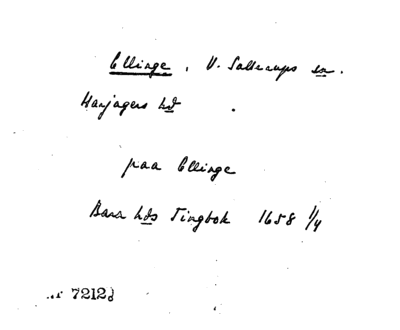 Ellinge, V. Sallerups sn.
Harjagers hd
paa Ellinge
Bara hds Tingbok 1658 1/4
7212